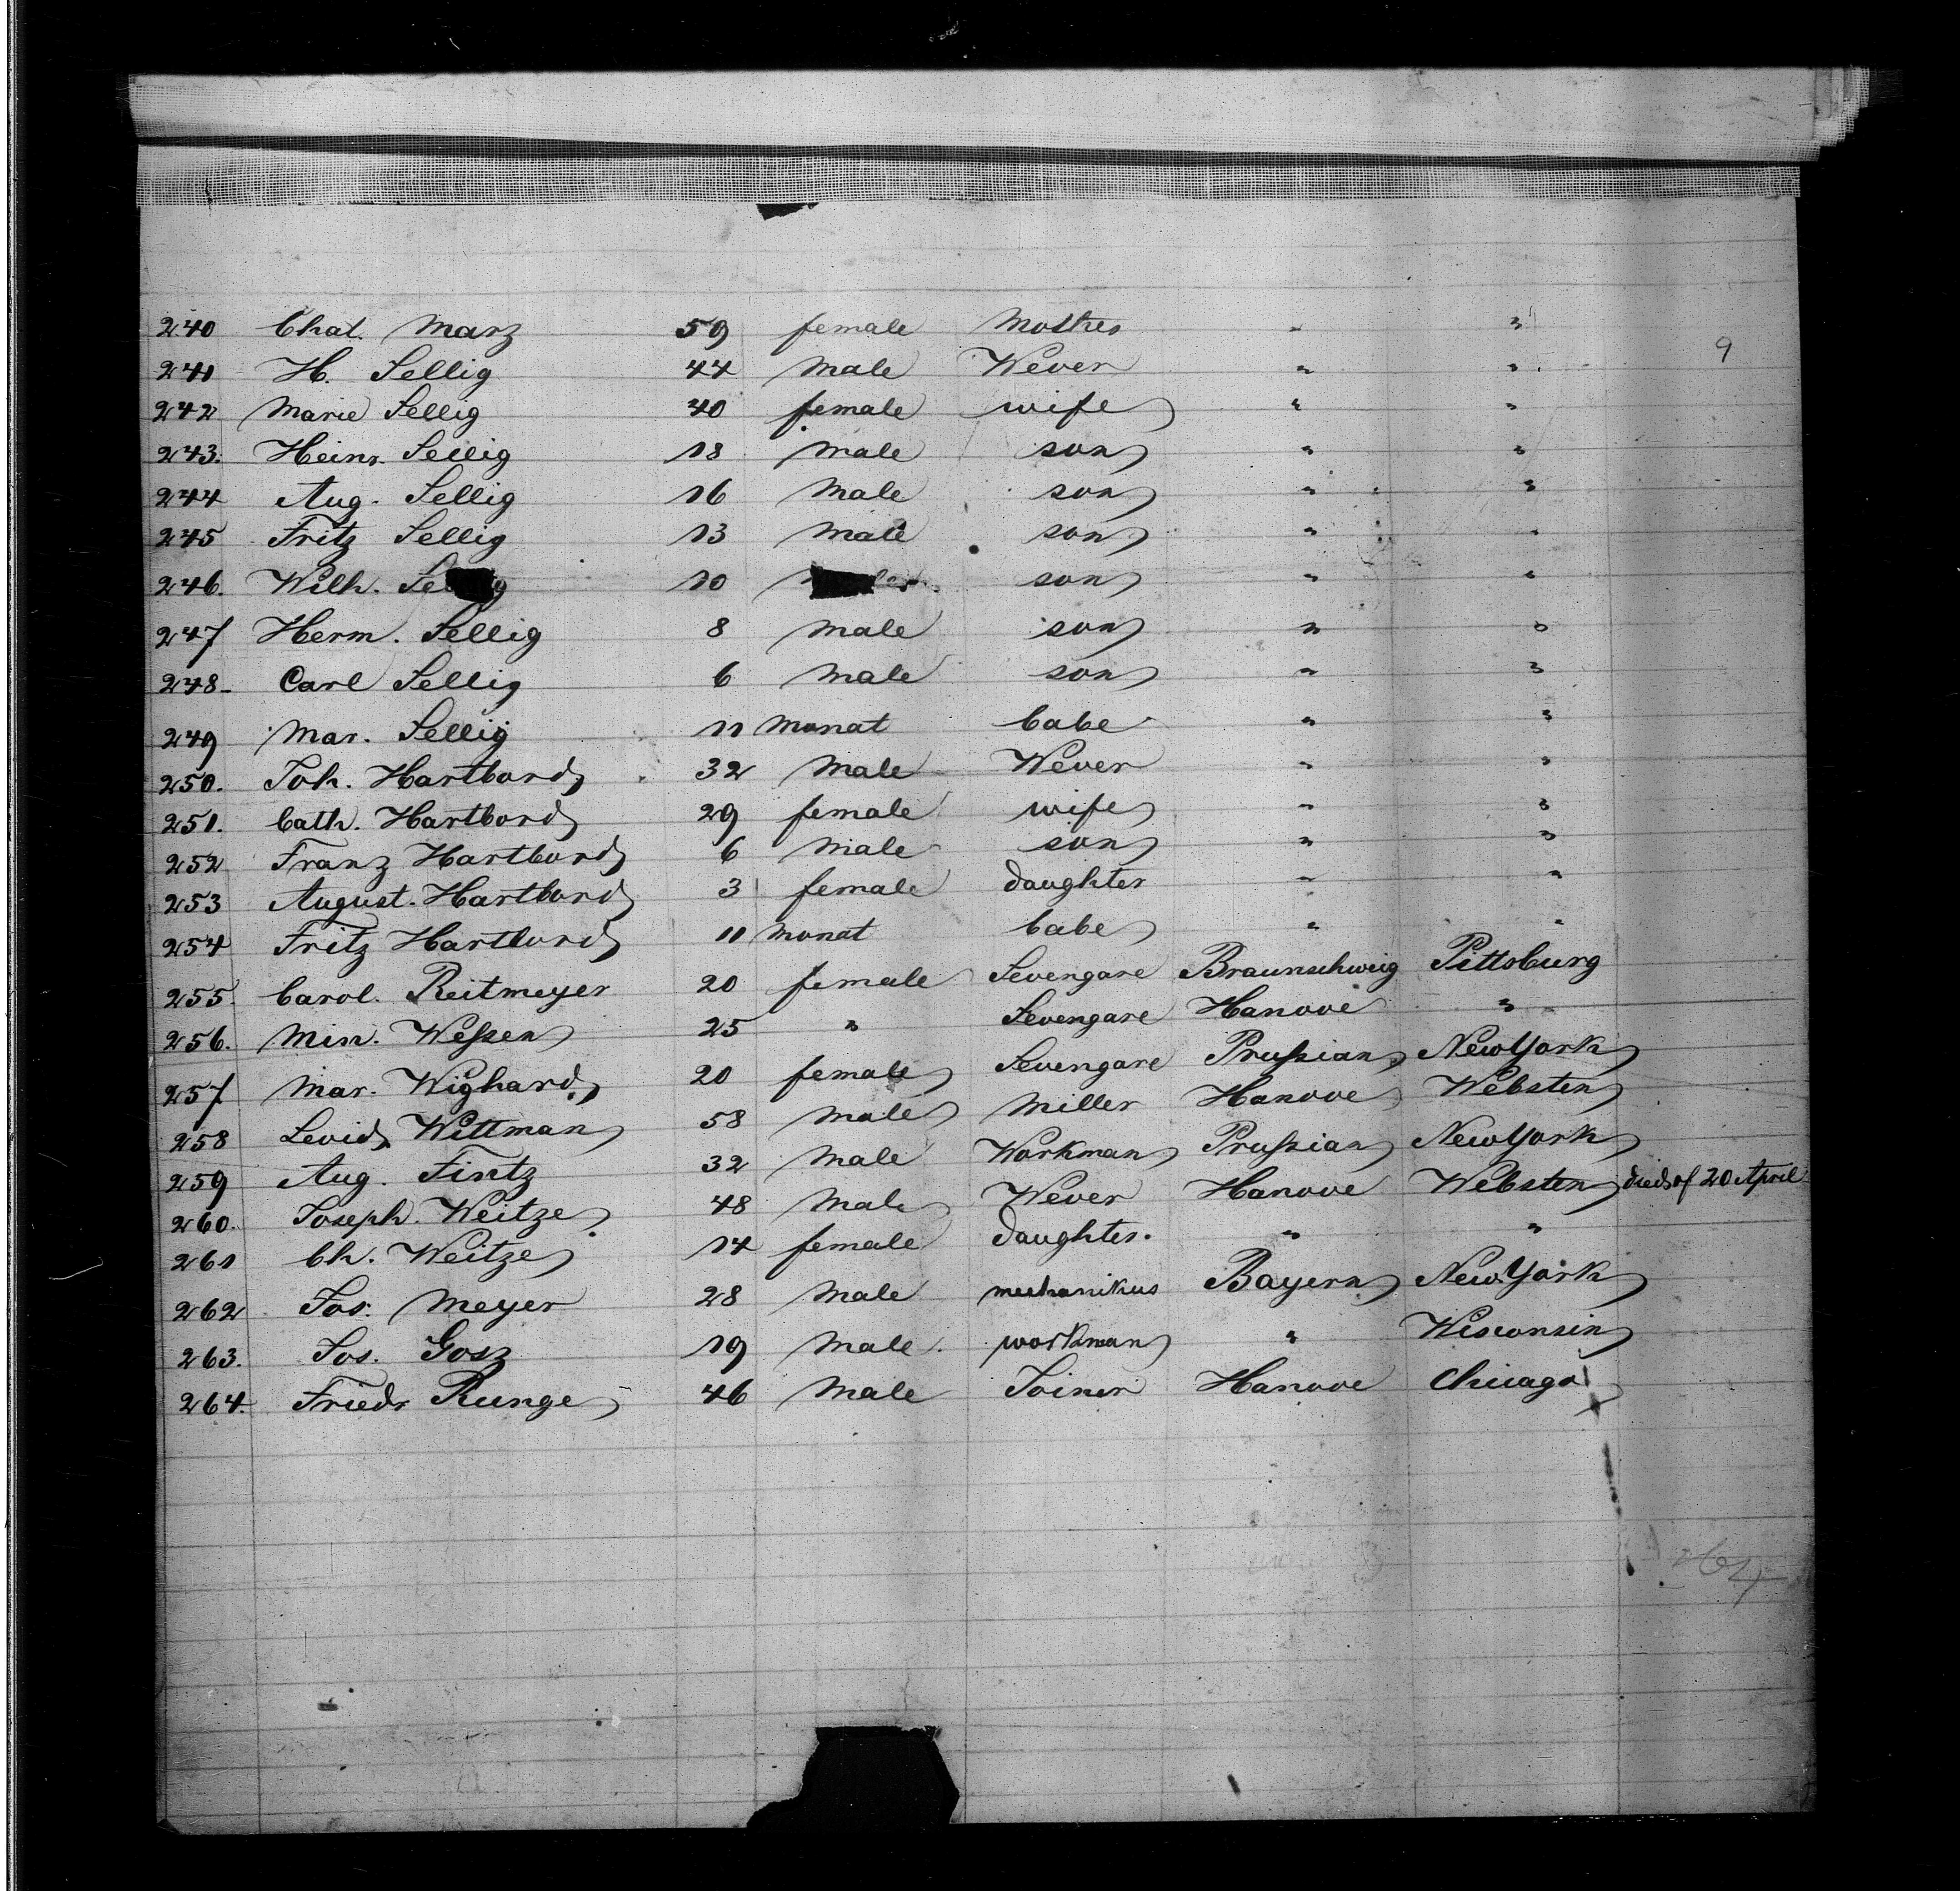 240 Chat. Marz 59 female Mother " "
9
241 H. Sellig 44 Male Wever " "
242 Marie Sellig 40 female wife " "
243. Heinr. Sellig 18 Male son " "
244 Aug. Sellig 16 Male son " "
245 Fritz Sellig 13 Male son " "
246. Wilh. Se g 10 son " "
247 Herm. Sellig 8 Male son " "
248 Carl Sellig 6 Male son " "
249 Mar. Sellig 11 Monat babe " "
250. Joh. Hartbord 32 Male Wever " "
251. Cath. Hartbord 29 female wife " "
252 Franz Hartbord 6 Male son " "
253 August. Hartbord 3 female daughter " "
254 Fritz Hartbord 11 Monat babe " "
255 Carol. Reitmeyer 20 female Sevengare Braunschweig Pittsburg
256. Min. Weſsen 25 " Sevengare Hanove "
257 Mar. Wighard 20 female Sevengare Pruſsian New York
258 Levid Wittman 58 Male Miller Hanove Websten
259 Aug. Fintz 32 Male Workman Pruſsian New York
260. Joseph. Weitze 48 Male Wever Hanove Websten died of 20 April
261 Ch. Weitze 14 female daughter. " "
262 Jos. Meyer 28 Male mechanikus Bayern New York
263. Jos. Gosz 19 Male. workman " Wisconsin
264. Friedr Runge 46 Male Joiner Hanove Chicago
264